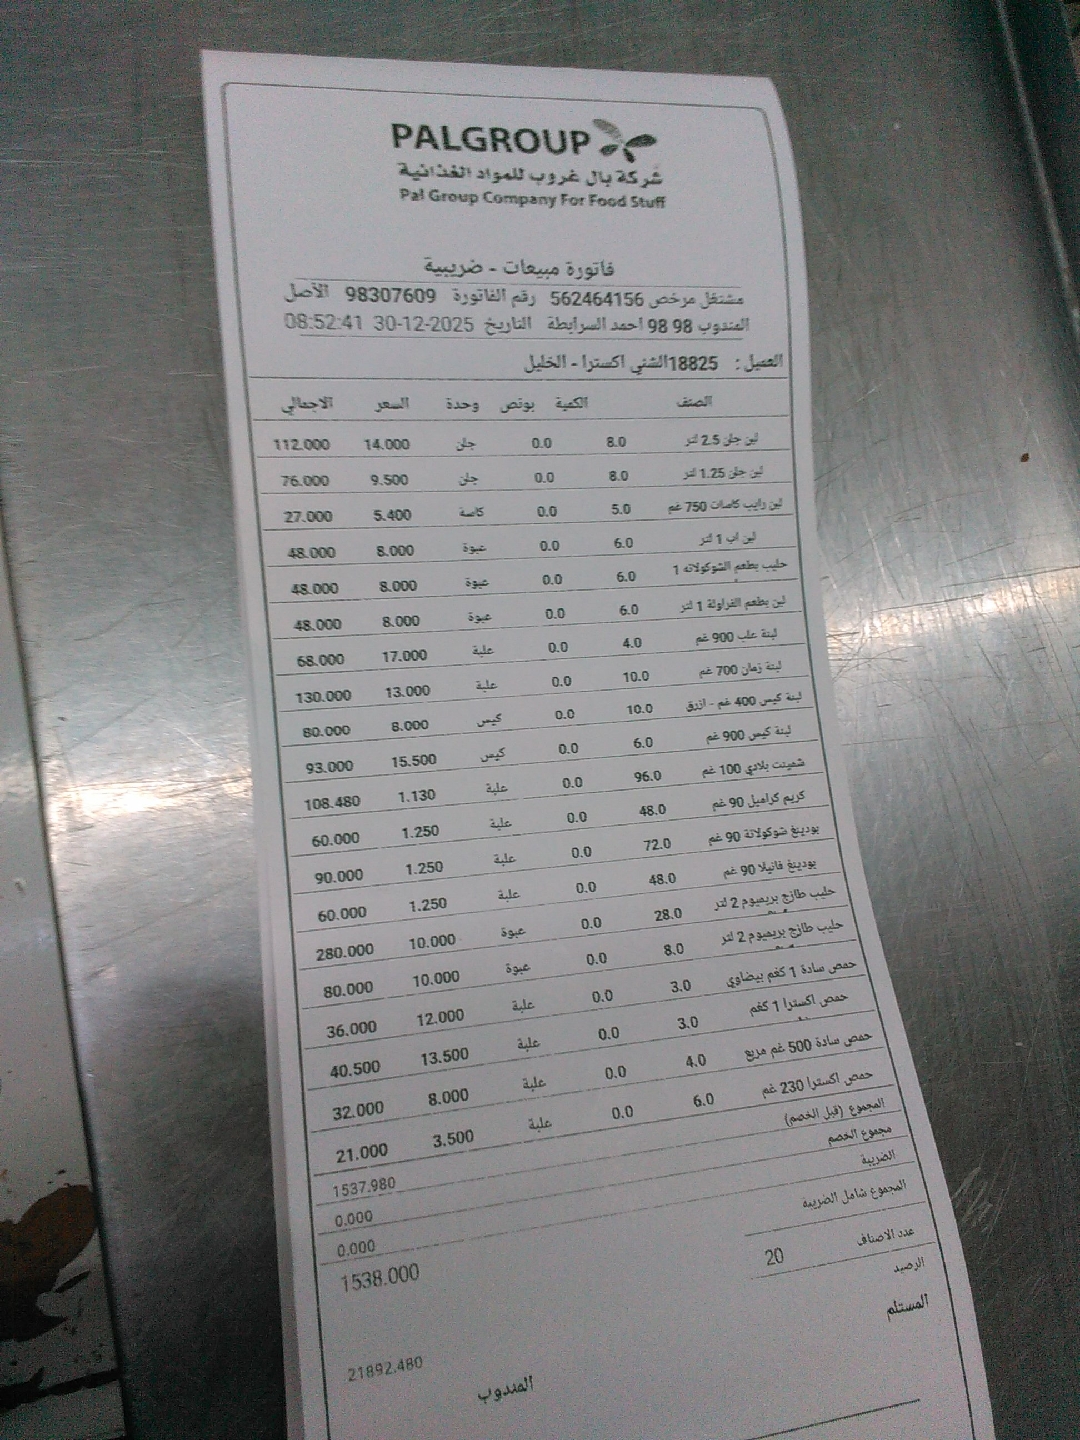 PALGROUP
شركة بال غروب للمواد الغذائية
Pal Group Company For Food Stuff
فاتورة مبيعات - ضريبية
مشتغل مرخص 562464156 رقم الفاتورة 98307609 الأصل
المندوب 98 98 احمد السرابطة التاريخ 30-12-2025 08:52:41
العميل : 18825الشني اكسترا - الخليل
الصنف الكمية بونص وحدة السعر الاجمالي
لبن جلن 2.5 لتر 8.0 0.0 جلن 14.000 112.000
لبن جلن 1.25 لتر 8.0 0.0 جلن 9.500 76.000
لبن رايب كاسات 750 غم 5.0 0.0 كاسة 5.400 27.000
لبن اب 1 لتر 6.0 0.0 عبوة 8.000 48.000
حليب بطعم الشوكولاته 1 6.0 0.0 عبوة 8.000 48.000
لبن بطعم الفراولة 1 لتر 6.0 0.0 عبوة 8.000 48.000
لبنة علب 900 غم 4.0 0.0 علبة 17.000 68.000
لبنة زمان 700 غم 10.0 0.0 علبة 13.000 130.000
لبنة كيس 400 غم - ازرق 10.0 0.0 كيس 8.000 80.000
لبنة كيس 900 غم 6.0 0.0 كيس 15.500 93.000
شمينت بلادي 100 غم 96.0 0.0 علبة 1.130 108.480
كريم كراميل 90 غم 48.0 0.0 علبة 1.250 60.000
بودينغ شوكولاتة 90 غم 72.0 0.0 علبة 1.250 90.000
بودينغ فانيلا 90 غم 48.0 0.0 علبة 1.250 60.000
حليب طازج بريميوم 2 لتر 28.0 0.0 عبوة 10.000 280.000
حليب طازج بريميوم 2 لتر 8.0 0.0 عبوة 10.000 80.000
حمص سادة 1 كغم بيضاوي 3.0 0.0 علبة 12.000 36.000
حمص اكسترا 1 كغم 3.0 0.0 علبة 13.500 40.500
حمص سادة 500 غم مربع 4.0 0.0 علبة 8.000 32.000
حمص اكسترا 230 غم 6.0 0.0 علبة 3.500 21.000
المجموع (قبل الخصم) 1537.980
مجموع الخصم 0.000
الضريبة 0.000
المجموع شامل الضريبة 1538.000
عدد الاصناف 20
الرصيد 21892.480
المستلم
المندوب